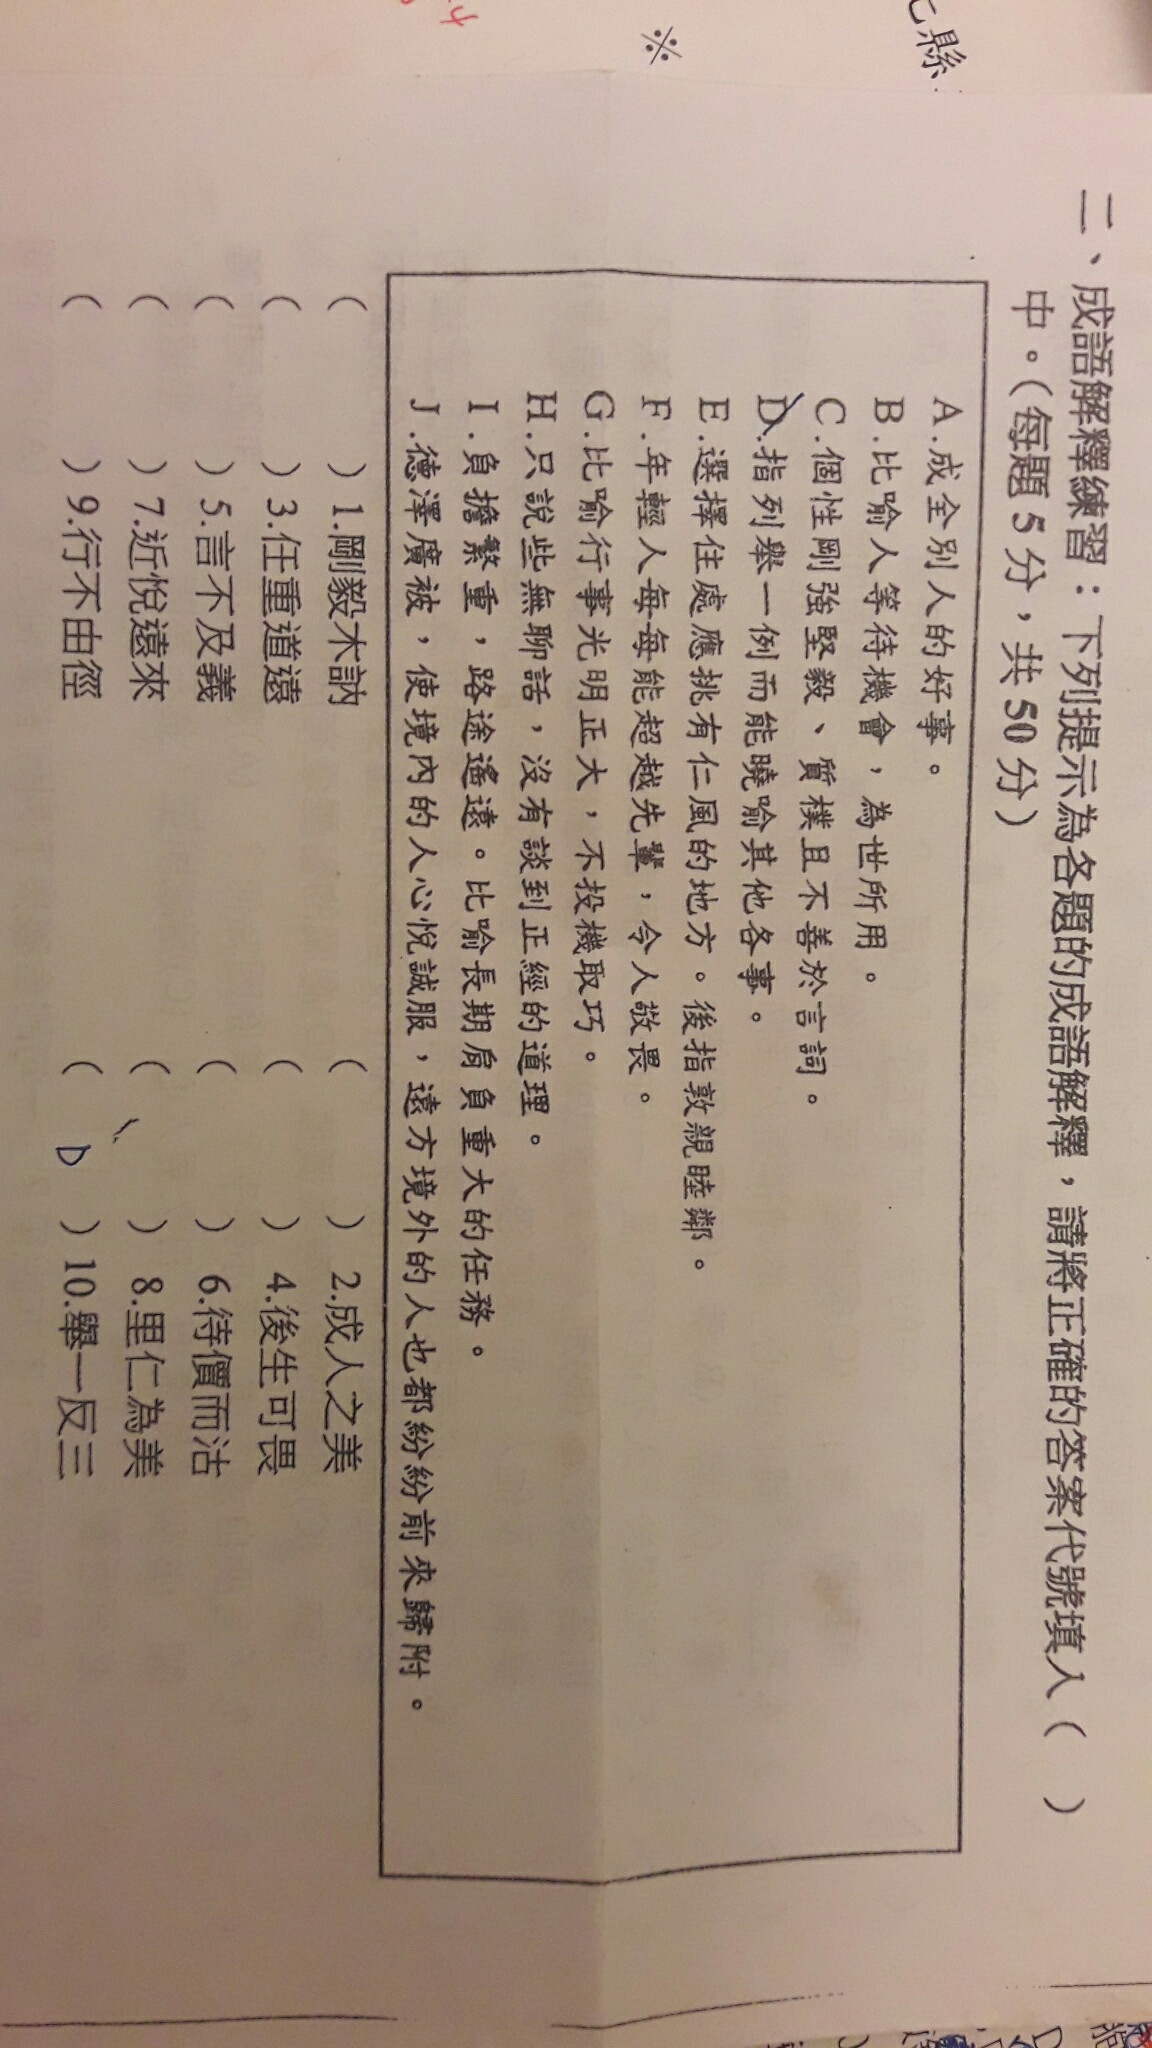 化縣
※
二、成語解釋練習：下列提示為各題的成語解釋，請將正確的答案代號填入(　)
中。(每題 5 分，共 50 分)
A.成全別人的好事。
B.比喻人等待機會，為世所用。
C.個性剛強堅毅、質樸且不善於言詞。
D.指列舉一例而能曉喻其他各事。
E.選擇住處應挑有仁風的地方。後指敦親睦鄰。
F.年輕人每每能超越先輩，令人敬畏。
G.比喻行事光明正大，不投機取巧。
H.只說些無聊話，沒有談到正經的道理。
I.負擔繁重，路途遙遠。比喻長期肩負重大的任務。
J.德澤廣被，使境內的人心悅誠服，遠方境外的人也都紛紛前來歸附。
(　) 1.剛毅木訥　(　) 2.成人之美
(　) 3.任重道遠　(　) 4.後生可畏
(　) 5.言不及義　(　) 6.待價而沽
(　) 7.近悅遠來　(　) 8.里仁為美
(　) 9.行不由徑　( D ) 10.舉一反三